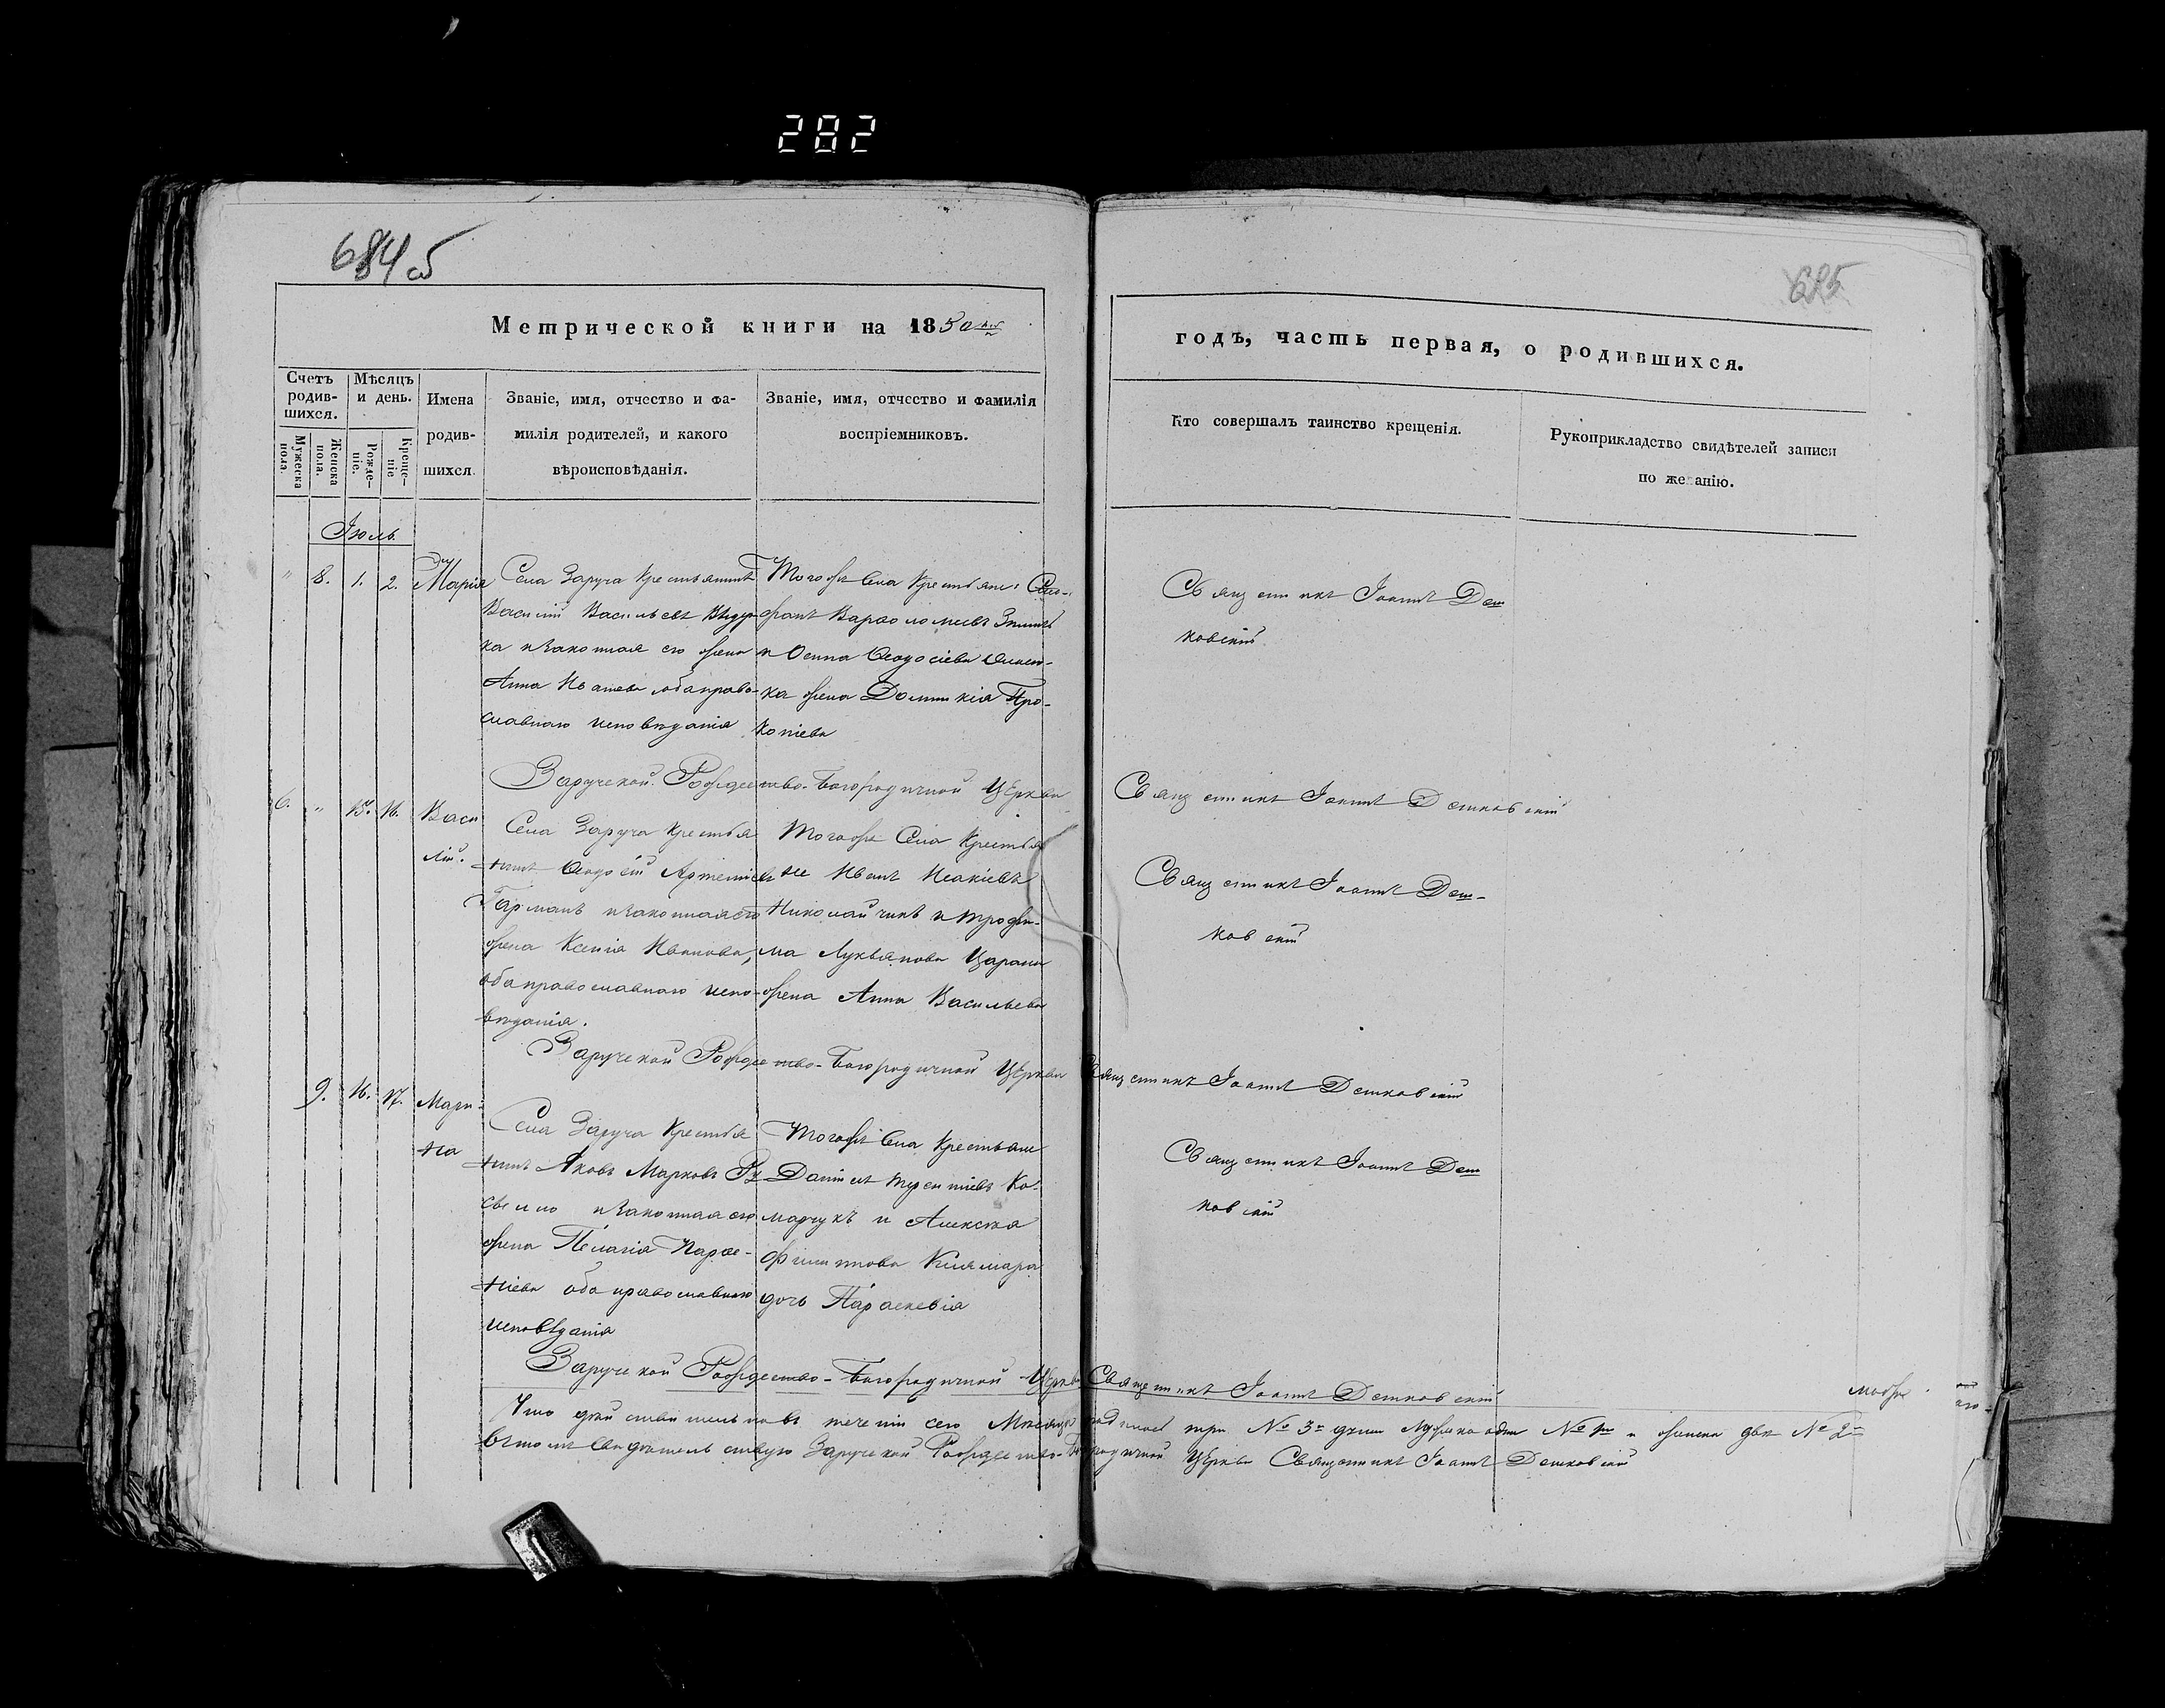 282
684 об
685
Метрической книги на 1850
годъ, часть первая, о родившихся.
Счетъ родив-шихся.
Мужеска пола.
Женска пола.
Мѣсяцъ и день.
Рожде-ніе.
Креще-ніе
Имена
родив-
шихся.
Званіе, имя, отчество и фа-
милія родителей, и какого
вѣроисповѣданія.
Званіе, имя, отчество и фамилія
воспріемниковъ.
Кто совершалъ таинство крещенія.
Рукоприкладство свидѣтелей записи
по же анію.
Іюль.
" 8. 1. 2. Марія
Села Заруча Крестьянинъ
Василій Васильевъ
ка и законная его жена
Анна Иванова оба право-
славнаго исповѣданія
Тогожъ Села Крестьяне:
Варѳоломеевъ
и Ѳеодосіева
ка жена Доминикія Про-
копіева
Священникъ Іоаннъ Деш
ковскій
Заруческой Рождество-Богородичной Церкви
Священникъ Іоаннъ Дешковскій
6. " 15. 16. Васи
лій.
Села Заруча Крестья
нинъ Ѳеодосій Артеміевъ
Гарманъ и законная его
жена Ксенія Иванова,
оба православнаго испо-
вѣданія.
Тогожъ Села Крестья
не Иванъ Исакіевъ
Николайчикъ и Трофи-
ма Лукьянова Царани
жена Анна Васильева
Священникъ Іоаннъ Деш-
ковскій
Заруческой Рождество-Богородичной Церкви
Священникъ Іоаннъ Дешковскій
9. 16. 17. Мари-
на
Села Заруча Крестья
нинъ Яковъ Марковъ
и законная его
жена Пелагія Парѳе-
ніева оба православнаго
исповѣданія
Тогожъ Села Крестьяне
Даніилъ Терентіевъ Ко-
марчукъ и Алексѣя
Филиппова
дочь Параскевія
Священникъ Іоаннъ Деш
ковскій
Заруческой Рождество-Богородичной Церкви
Священникъ Іоаннъ Дешковскій
Что дѣйствительно въ теченіи сего Мѣсяца родилось три № 3 душъ мужеска одна № 1 и женска двѣ № 2
въ томъ свидѣтельствую Заруческой Рождество-Богородичной Церкви Священникъ Іоаннъ Дешковскій